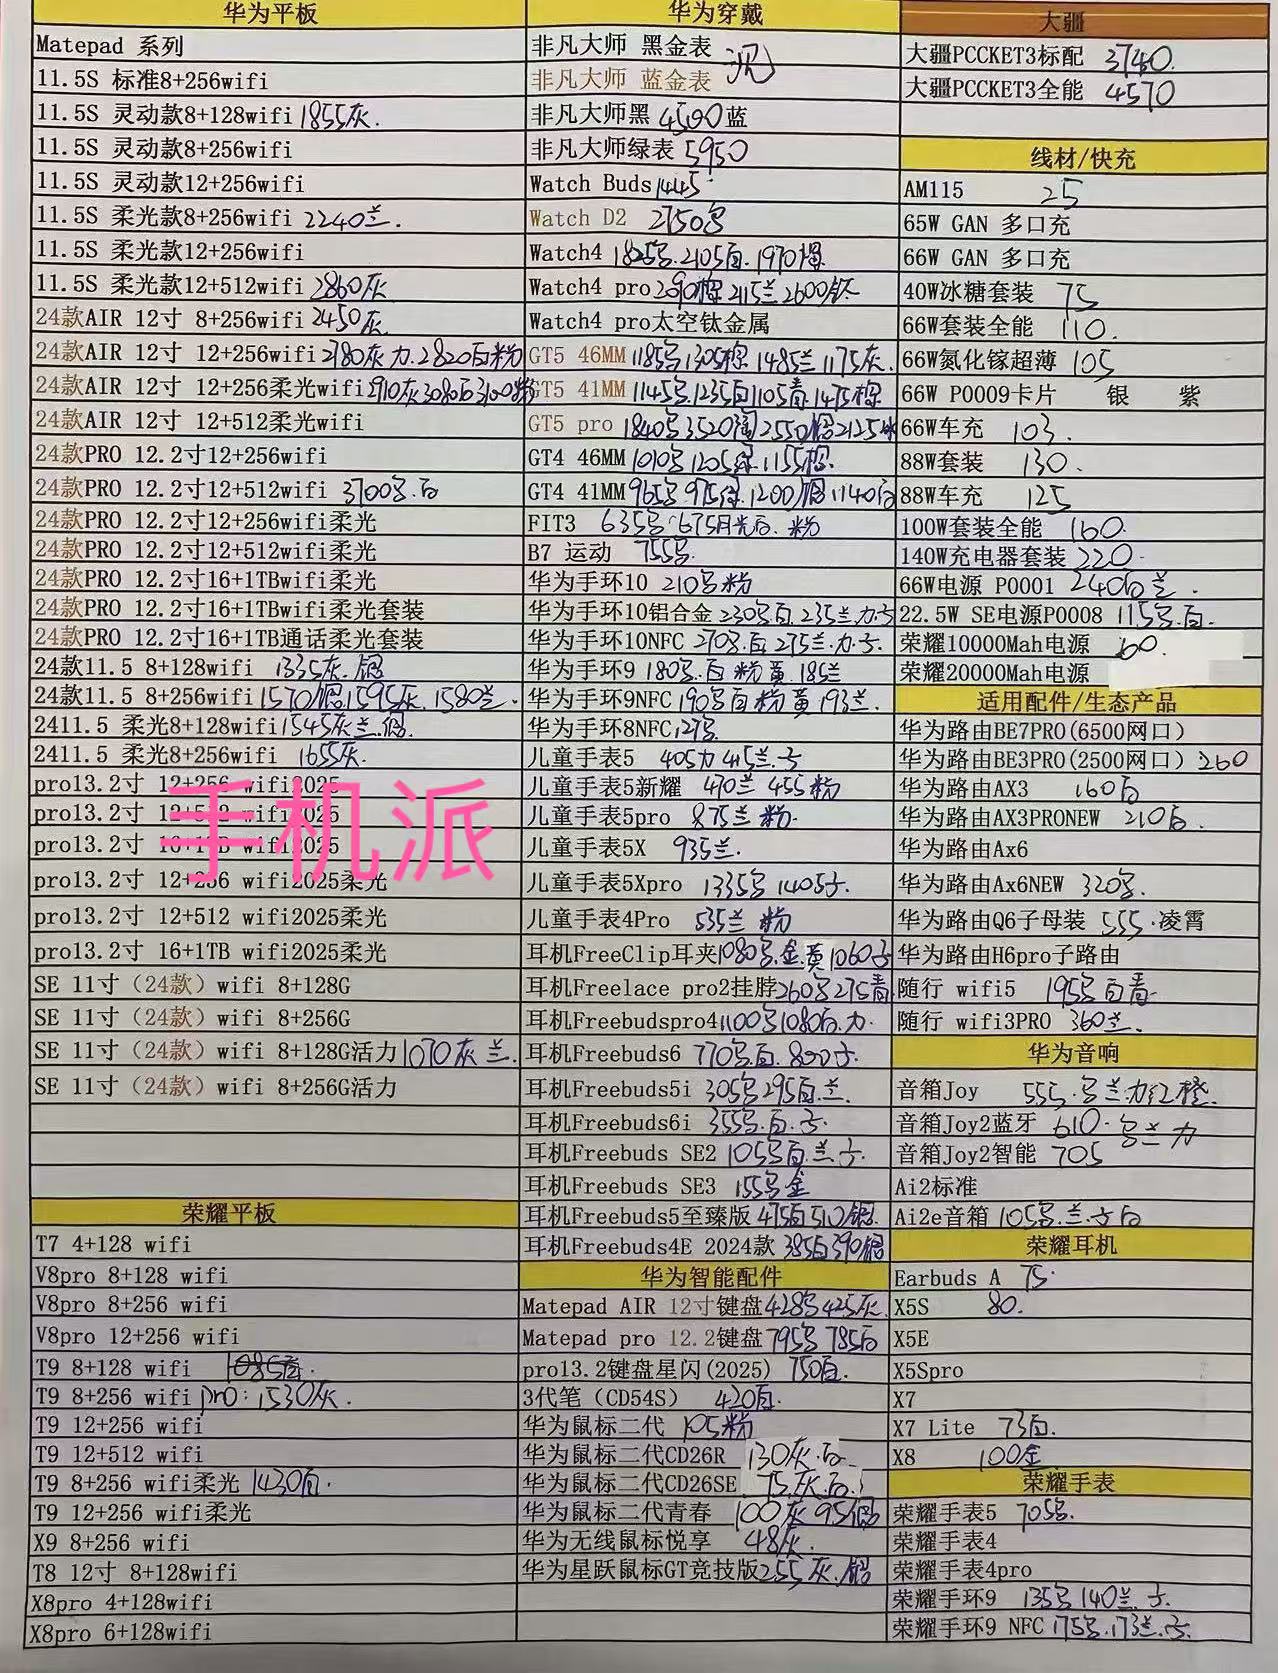 华为平板
Matepad 系列
11.5S 标准8+256wifi
11.5S 灵动款8+128wifi 1855灰.
11.5S 灵动款8+256wifi
11.5S 灵动款12+256wifi
11.5S 柔光款8+256wifi 2240兰.
11.5S 柔光款12+256wifi
11.5S 柔光款12+512wifi 2860灰
24款AIR 12寸 8+256wifi 2450灰
24款AIR 12寸 12+256wifi 2780灰 力.2820白粉
24款AIR 12寸 12+256柔光wifi 2910灰3080白3100粉
24款AIR 12寸 12+512柔光wifi
24款PRO 12.2寸12+256wifi
24款PRO 12.2寸12+512wifi 3700.白
24款PRO 12.2寸12+256wifi柔光
24款PRO 12.2寸12+512wifi柔光
24款PRO 12.2寸16+1TBwifi柔光
24款PRO 12.2寸16+1TBwifi柔光套装
24款PRO 12.2寸16+1TB通话柔光套装
24款11.5 8+128wifi 1335灰.银
24款11.5 8+256wifi 1570银.1595灰.1580兰.
2411.5 柔光8+128wifi 1545灰兰.银
2411.5 柔光8+256wifi 1655灰.
pro13.2寸 12+256 wifi2025
pro13.2寸 12+512 wifi2025
手机派
pro13.2寸 16+1TB wifi2025
pro13.2寸 12+256 wifi2025柔光
pro13.2寸 12+512 wifi2025柔光
pro13.2寸 16+1TB wifi2025柔光
SE 11寸（24款）wifi 8+128G
SE 11寸（24款）wifi 8+256G
SE 11寸（24款）wifi 8+128G活力 1070灰 兰.
SE 11寸（24款）wifi 8+256G活力
荣耀平板
T7 4+128 wifi
V8pro 8+128 wifi
V8pro 8+256 wifi
V8pro 12+256 wifi
T9 8+128 wifi
T9 8+256 wifi pro:1530灰.
T9 12+256 wifi
T9 12+512 wifi
T9 8+256 wifi柔光 1430白.
T9 12+256 wifi柔光
X9 8+256 wifi
T8 12寸 8+128wifi
X8pro 4+128wifi
X8pro 6+128wifi
华为穿戴
非凡大师 黑金表
非凡大师 蓝金表
非凡大师黑 4500蓝
非凡大师绿表 5950
Watch Buds 1445
Watch D2 2750
Watch4 1825.2105白.1970棕
Watch4 pro 2090棕2115兰2600钛
Watch4 pro太空钛金属
GT5 46MM 1185 1305棕 1485兰 1175灰.
GT5 41MM 1145.1235白1105青.1475棕
GT5 pro 1840 3520陶2550银2125
GT4 46MM 1010 1205绿.1155棕.
GT4 41MM 965 975绿.1200银 1140白
FIT3 635 675月光白.粉
B7 运动 755
华为手环10 210粉
华为手环10铝合金 230白.235兰.力.
华为手环10NFC 270.白 275兰.力.
华为手环9 180.白 粉 黄.185兰
华为手环9NFC 190白 粉 黄 193兰.
华为手环8NFC 127
儿童手表5 405力 415兰.
儿童手表5新耀 470兰 455粉
儿童手表5pro 875兰 粉.
儿童手表5X 935兰.
儿童手表5Xpro 1335 1405
儿童手表4Pro 535兰 粉
耳机FreeClip耳夹1080.金.黄1060
耳机Freelace pro2挂脖260 275青
耳机Freebudspro4 1100 1080白.力.
耳机Freebuds6 770.白.800
耳机Freebuds5i 305 295白.兰.
耳机Freebuds6i 355.白.
耳机Freebuds SE2 105白.兰.
耳机Freebuds SE3 155金
耳机Freebuds5至臻版 475白510银.
耳机Freebuds4E 2024款 385白390银
华为智能配件
Matepad AIR 12寸键盘428 425灰.
Matepad pro 12.2键盘795 785白
pro13.2键盘星闪(2025) 750白.
3代笔（CD54S） 420白.
华为鼠标二代 105粉
华为鼠标二代CD26R 130灰.白
华为鼠标二代CD26SE 75.灰.白
华为鼠标二代青春 100灰 95银
华为无线鼠标悦享 48灰.
华为星跃鼠标GT竞技版255灰.银
大疆
大疆PCCKET3标配 3740.
大疆PCCKET3全能 4570
线材/快充
AM115 25
65W GAN 多口充
66W GAN 多口充
40W冰糖套装 75
66W套装全能 110.
66W氮化镓超薄 105
66W P0009卡片 银 紫
66W车充 103.
88W套装 130.
88W车充 125
100W套装全能 160.
140W充电器套装 220.
66W电源 P0001 240白兰.
22.5W SE电源P0008 115.白.
荣耀10000Mah电源 60.
荣耀20000Mah电源
适用配件/生态产品
华为路由BE7PRO(6500网口)
华为路由BE3PRO(2500网口) 260
华为路由AX3 160白
华为路由AX3PRONEW 210白.
华为路由Ax6
华为路由Ax6NEW 320.
华为路由Q6子母装 555.凌霄
华为路由H6pro子路由
随行 wifi5 195白青.
随行 wifi3PRO 360兰.
华为音响
音箱Joy 555.兰力红橙.
音箱Joy2蓝牙 610.兰力
音箱Joy2智能 705
Ai2标准
Ai2e音箱 105.兰.白
荣耀耳机
Earbuds A 75.
X5S 80.
X5E
X5Spro
X7
X7 Lite 73白.
X8 100金
荣耀手表
荣耀手表5 705.
荣耀手表4
荣耀手表4pro
荣耀手环9 135 140兰.
荣耀手环9 NFC 175.173兰.